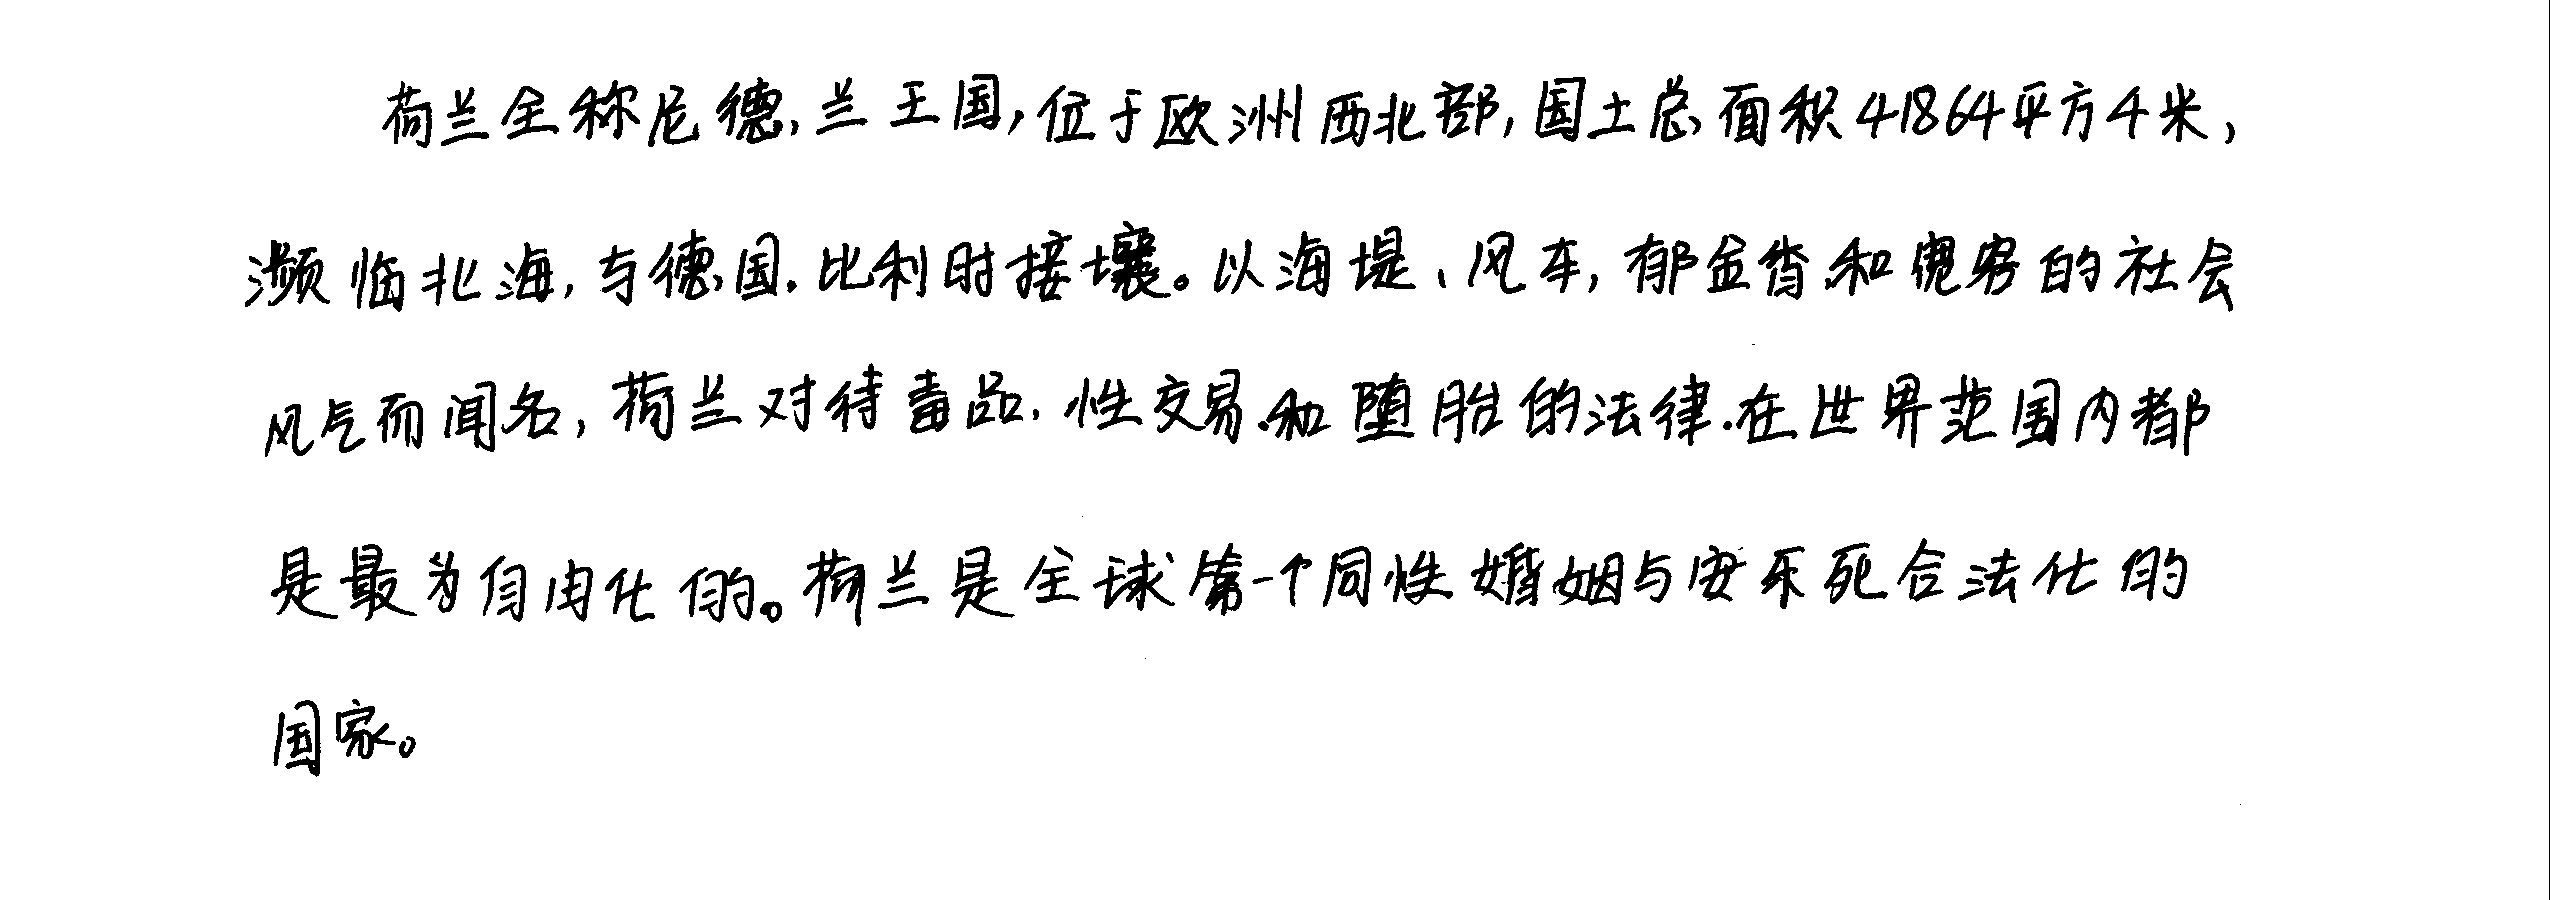 荷兰全称尼德兰王国,位于欧洲西北部,国土总面积41864平方千米,
濒临北海,与德国.比利时接壤。以海堤、风车,郁金香和宽容的社会
风气而闻名,荷兰对待毒品.性交易和堕胎的法律.在世界范围内都
是最为自由化的。荷兰是全球第一个同性婚姻与安乐死合法化的
国家。